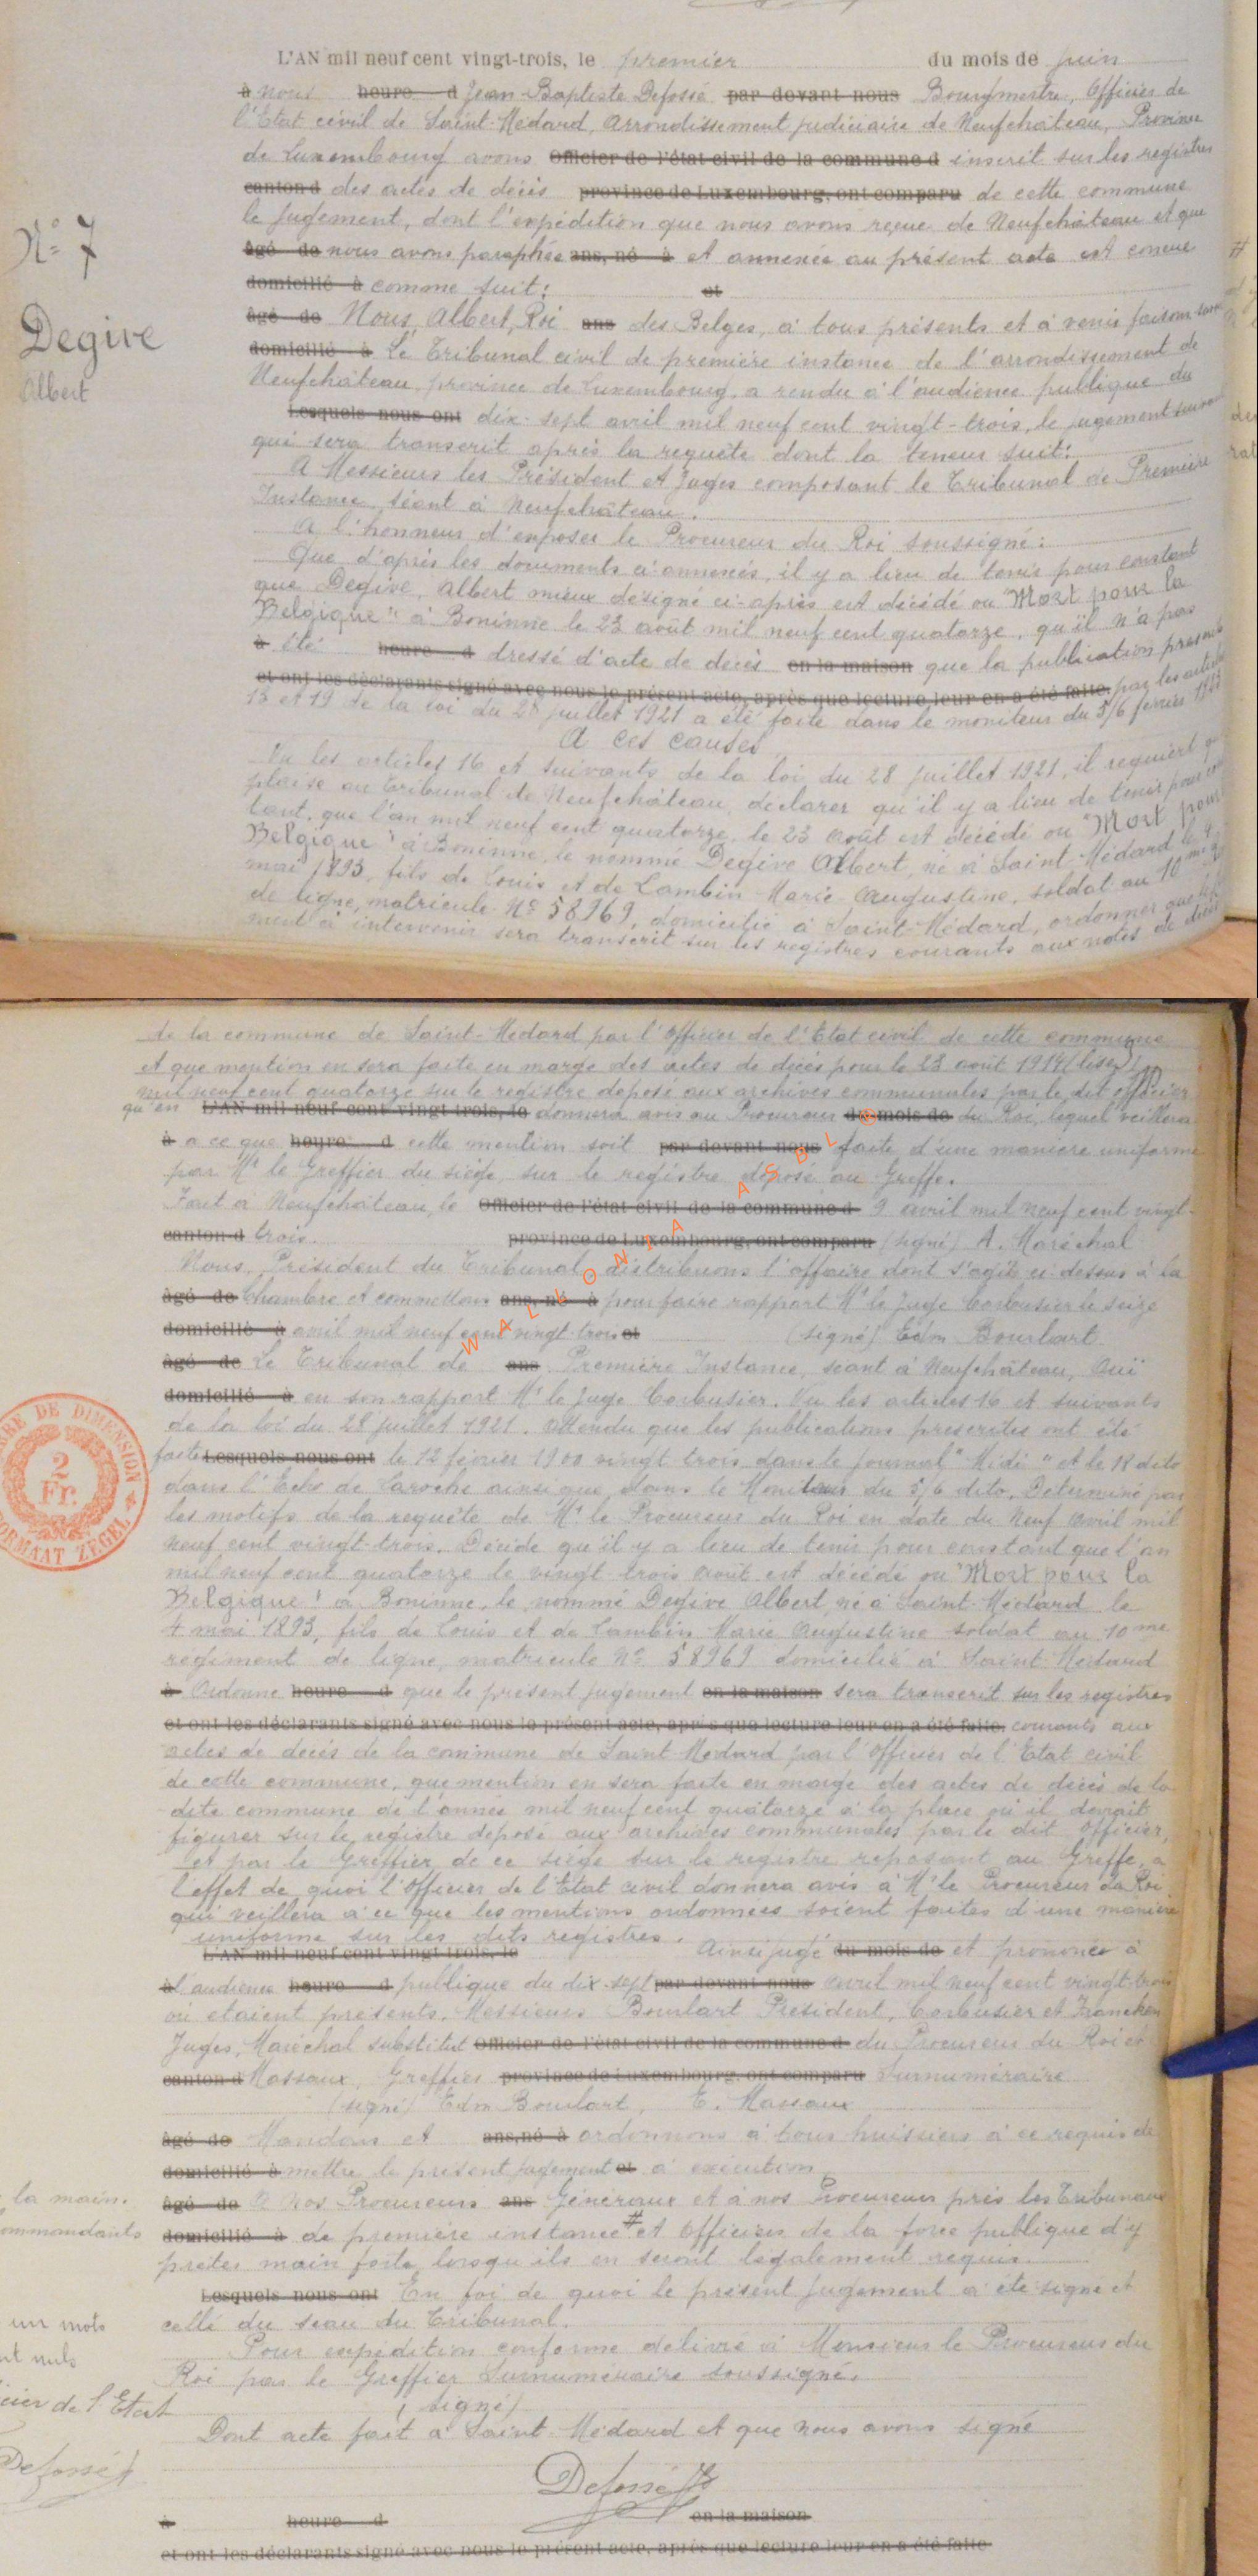 L'AN mil neuf cent vingt-trois, le premier du mois de juin
à nous heure d Jean-Baptiste Defossé par devant nous Bourgmestre, Officier de
l'Etat civil de Saint-Médard, arrondissement judiciaire de Neufchâteau, Province
de Luxembourg avons Officier de l'état civil de la commune d inscrit sur les registres
canton d des actes de décès province de Luxembourg, ont comparu de cette commune
le jugement, dont l'expédition que nous avons reçue de Neufchâteau et que
âgé de nous avons paraphée ans, né à et annexée au présent acte est conçue
domicilié à comme suit: et
N° 7
Degive
Albert
âgé de Nous, Albert, Roi ans des Belges, à tous présents et à venir faisons savoir
domicilié à Le Tribunal civil de première instance de l'arrondissement de
Neufchâteau, province de Luxembourg, a rendu à l'audience publique du
Lesquels nous ont dix-sept avril mil neuf cent vingt-trois, le jugement suivant
qui sera transcrit après la requête dont la teneur suit:
A Messieurs les Président et Juges composant le Tribunal de Première
Instance, séant à Neufchâteau.
A l'honneur d'exposer le Procureur du Roi soussigné:
Que d'après les documents ci-annexés, il y a lieu de tenir pour constant
que Degive, Albert mieux désigné ci-après est décédé ou "Mort pour la
Belgique" à Boninne le 23 août mil neuf cent quatorze, qu'il n'a pas
à été heure d dressé d'acte de décès en la maison que la publication prescrite
et ont les déclarants signé avec nous le présent acte, après que lecture leur en a été faite. par les articles
13 et 19 de la loi du 28 juillet 1921 a été faite dans le moniteur du 5/6 février 1923
A ces causes
Vu les articles 16 et suivants de la loi du 28 juillet 1921, il requiert qu'il
plaise au Tribunal de Neufchâteau, déclarer qu'il y a lieu de tenir pour cons
tant, que l'an mil neuf cent quatorze, le 23 août est décédé ou "Mort pour
Belgique" à Boninne, le nommé Degive Albert, né à Saint-Médard le 4
mai 1893, fils de Louis et de Lambin Marie-Augustine, soldat au 10 me
de ligne, matricule N° 58969, domicilié à Saint-Médard, ordonner que le juge
ment à intervenir sera transcrit sur les registres courants aux notes de décès
de la commune de Saint-Médard par l'Officier de l'Etat civil de cette commune
et que mention en sera faite en marge des actes de décès pour le 23 août 1914 (lisez)
mil neuf cent quatorze sur le registre déposé aux archives communales par le dit officier
qu'en L'AN mil neuf cent vingt-trois, le donnera avis au Procureur du mois de du Roi, lequel veillera
à a ce que heure d cette mention soit par devant nous faite d'une manière uniforme
par Mr le Greffier du siège, sur le registre déposé au Greffe.
Fait à Neufchâteau, le Officier de l'état civil de la commune d 9 avril mil neuf cent vingt-
canton d trois. province de Luxembourg, ont comparu (signé) A. Maréchal
Nous, Président du Tribunal, distribuons l'affaire dont s'agit ci-dessus à la
âgé de Chambre et commettons ans, né à pour faire rapport Mr le Juge Corbusier le seize
domicilié à avril mil neuf cent vingt-trois et (signé) Edm. Bourlart
âgé de Le Tribunal de ans Première Instance, séant à Neufchâteau, Ouï
domicilié à en son rapport Mr le Juge Corbusier. Vu les articles 16 et suivants
de la loi du 28 juillet 1921. Attendu que les publications prescrites ont été
faites Lesquels nous ont le 12 février 1900 vingt trois dans le journal "Midi" et le 18 dito
dans l'Echo de Laroche ainsi que dans le Moniteur du 5/6 dito. Déterminé par
les motifs de la requête de Mr le Procureur du Roi en date du neuf avril mil
neuf cent vingt-trois. Décide qu'il y a lieu de tenir pour constant que l'an
mil neuf cent quatorze le vingt trois août est décédé ou "Mort pour la
Belgique" à Boninne, le nommé Degive Albert, né à Saint-Médard le
4 mai 1893, fils de Louis et de Lambin Marie Augustine soldat au 10me
régiment de ligne, matricule N° 58969 domicilié à Saint-Médard
à Ordonne heure d que le présent jugement en la maison sera transcrit sur les registres
et ont les déclarants signé avec nous le présent acte, après que lecture leur en a été faite. courants aux
actes de décès de la commune de Saint-Médard par l'Officier de l'Etat civil
de cette commune, que mention en sera faite en marge des actes de décès de la
dite commune de l'année mil neuf cent quatorze à la place où il devrait
figurer sur le registre déposé aux archives communales par le dit Officier,
et par le Greffier de ce siège sur le registre reposant au Greffe, a
l'effet de quoi l'Officier de l'Etat civil donnera avis à Mr le Procureur du Roi
qui veillera à ce que les mentions ordonnées soient faites d'une manière
uniforme sur les dits registres.
L'AN mil neuf cent vingt-trois, le Ainsi jugé du mois de et prononcé à
à l'audience heure d publique du dix-sept par devant nous avril mil neuf cent vingt-trois
où étaient présents, Messieurs Bourlart Président, Corbusier et Francken
Juges, Maréchal substitut Officier de l'état civil de la commune d du Procureur du Roi et
canton d Massaux, Greffier province de Luxembourg, ont comparu Surnuméraire
(signé) Edm Bourlart, E. Massaux
âgé de Mandons et ans, né à ordonnons à tous huissiers à ce requis de
domicilié à mettre le présent jugement et à exécution
âgé de A nos Procureurs ans Généraux et à nos Procureurs près les Tribunaux
domicilié à de première instance # et Officiers de la force publique d'y
prêter main forte lorsqu'ils en seront légalement requis.
Lesquels nous ont En foi de quoi le présent jugement a été signé et
cellé du seau du Tribunal.
Pour expédition conforme délivré à Monsieur le Procureur du
Roi par le Greffier Surnuméraire soussigné.
(signé)
Dont acte fait à Saint-Médard et que nous avons signé
Defossé
à heure d en la maison
et ont les déclarants signé avec nous le présent acte, après que lecture leur en a été faite
la main.
commandants
un mots
nt nuls
cier de l'Etat
Defossé
2
Fr.
DE DIMENSION
FORMAAT ZEGEL
WALLONIA ASBL ©